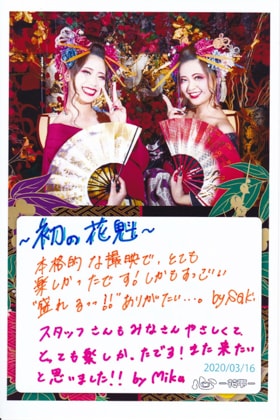 ~初の花魁~
本格的な撮映で、とても
楽しかったです!しかもすっごい
"盛れる…!!"ありがたい…。by
スタッフさんもみなさんやさしくて、
とっても楽しかったです!また来たい
と思いました!! by Mika
2020/03/16